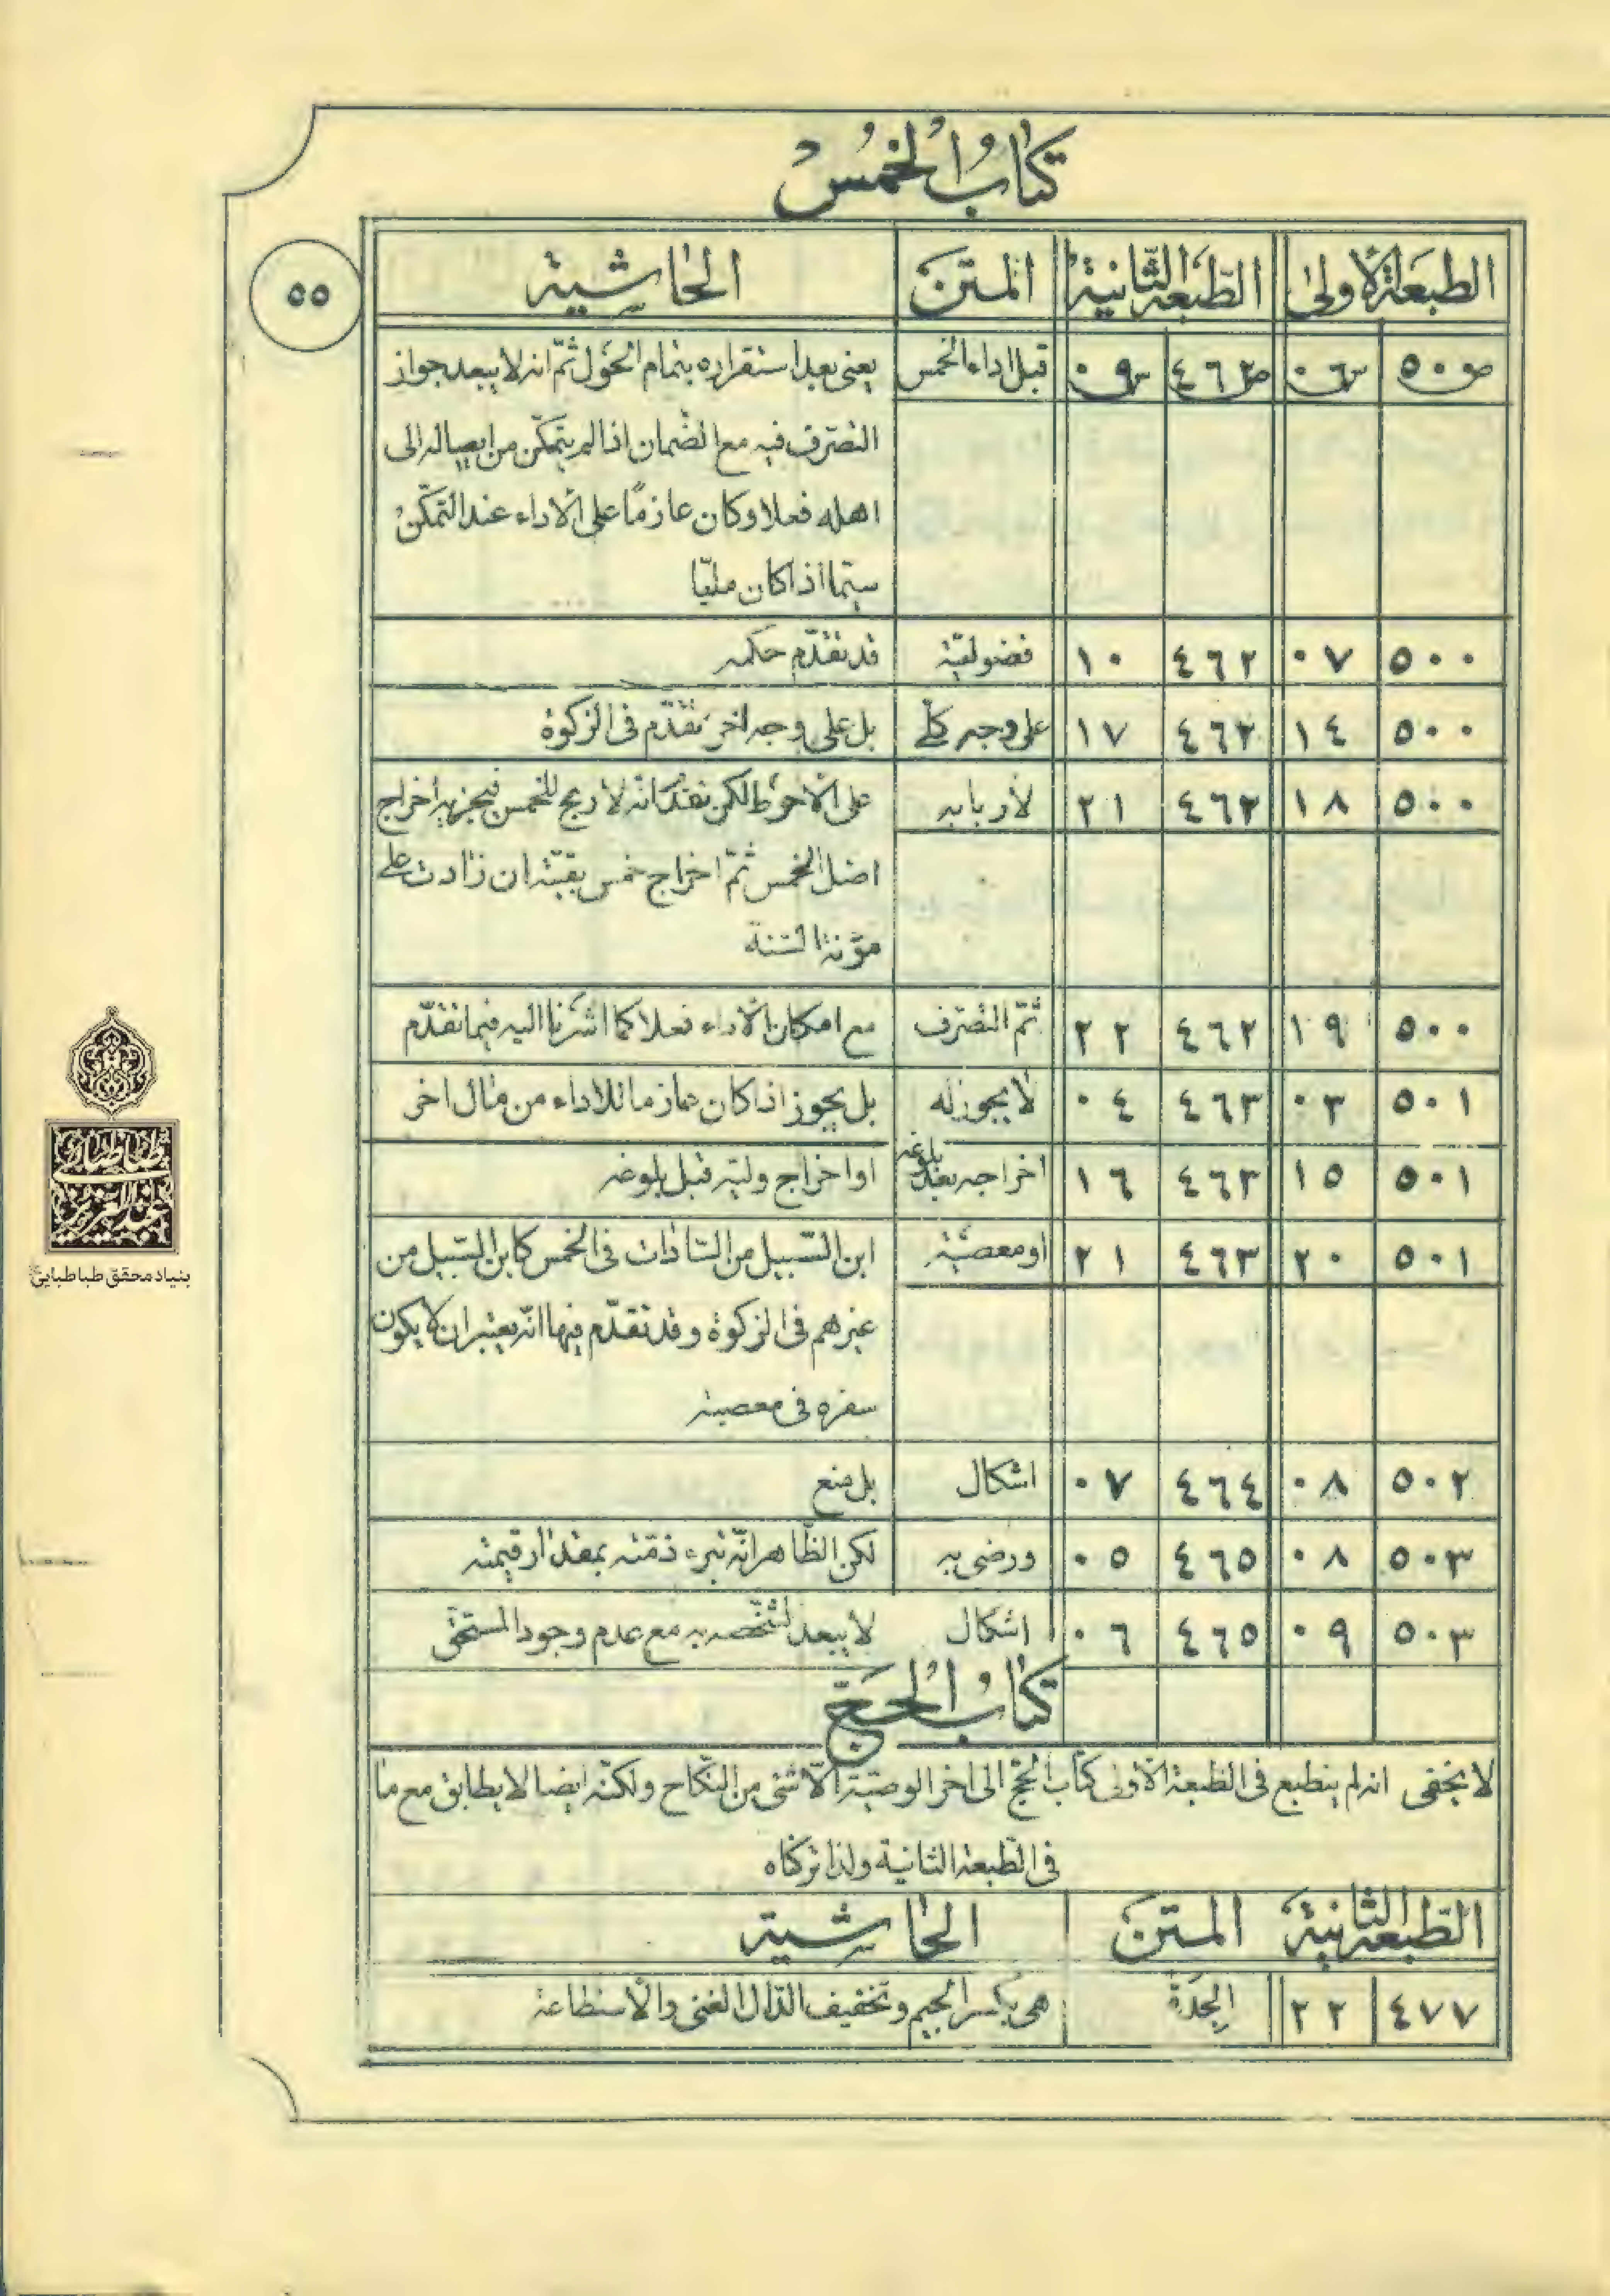 كتابُ الخُمُسْ
٥٥
الطبعة الأولىٰ الطّبعة الثّانية المتن الحاشية
ص٥٠٠ س٠٦ ص٤٦٢ س٠٩ قبل اداء الخمس يعنى بعد استقراره بتمام الحول ثمّ انه لا يبعد جواز
التصرّف فيه مع الضمان اذا لم يتمكّن من ايصاله الى
اهله فعلا وكان عازمًا على الأداء عند التمكّن
سيّما اذا كان مليّا
٥٠٠ ٠٧ ٤٦٢ ١٠ فضوليّة قد تقدّم حكمه
٥٠٠ ١٤ ٤٦٢ ١٧ على وجه كلّى بل على وجه اخر تقدّم فى الزكوة
٥٠٠ ١٨ ٤٦٢ ٢١ لأربابه على الأحوط لكن تقدّم انه لا ربح للخمس فيجزيه اخراج
اصل الخمس ثمّ اخراج خمس بقيّته ان زادت على
مؤنة السّنة
٥٠٠ ١٩ ٤٦٢ ٢٢ ثمّ التصرّف مع امكان الأداء فعلا كما اشرنا اليه فيما تقدّم
٥٠١ ٠٣ ٤٦٣ ٠٤ لا يجوز له بل يجوز اذا كان عازما للاداء من مال اخر
٥٠١ ١٥ ٤٦٣ ١٦ اخراجه بعد بلوغه او اخراج وليّه قبل بلوغه
٥٠١ ٢٠ ٤٦٣ ٢١ او معصية ابن السّبيل من السّادات فى الخمس كابن السّبيل من
غيرهم فى الزكوة وقد تقدّم فيها انّه يعتبر ان لا يكون
سفره فى معصية
٥٠٢ ٠٨ ٤٦٤ ٠٧ اشكال بل منع
٥٠٣ ٠٨ ٤٦٥ ٠٥ ورضى به لكن الظّاهر انّه تبرء ذمّته بمقدار قيمته
٥٠٣ ٠٩ ٤٦٥ ٠٦ اشكال لا يبعد تشخّصه به مع عدم وجود المستحق
كتابُ الحَجّ
لا يخفى انه لم ينطبع فى الطبعة الأولى كتاب الحجّ الى اخر الوصيّة الّا شئ من النّكاح ولكنّه ايضا لا يطابق مع ما
فى الطّبعة الثانية ولذا تركناه
الطّبعة الثّانية المتن الحاشية
٤٧٧ ٢٢ الجِدَة هى بكسر الجيم وتخفيف الدّال الغنى والاستطاعة
بنیاد محقق طباطبایی